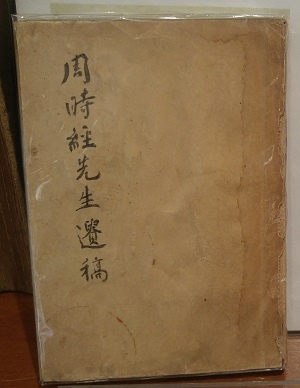 周時經先生遺稿